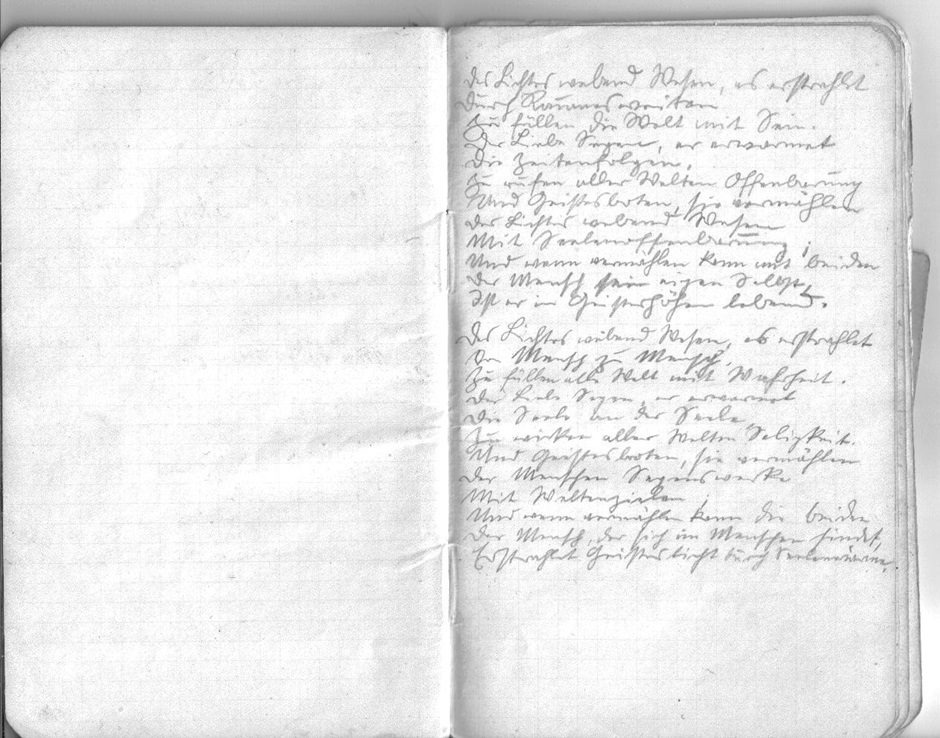 Des Lichtes webend Wesen, es erstrahlt
Durch Raumesweiten
Zu füllen die Welt mit Sein.
Der Liebe Segen, er erwarmet
Die Zeitenfolgen,
Zu rufen aller Welten Offenbarung
Und Geistesboten, sie vermählen
Des Lichtes webend Wesen
Mit Seelenoffenbarung;
Und wenn vermählen kann mit beiden
Der Mensch sein eigen Selbst,
Ist er in Geisteshöhen lebend.
Des Lichtes webend Wesen, es erstrahlet
Von Mensch zu Mensch,
Zu füllen alle Welt mit Wahrheit.
Der Liebe Segen, er erwarmet
Die Seele an der Seele,
Zu wirken aller Welten Seligkeit.
Und Geistesboten, sie vermählen
Der Menschen Segenswerke
Mit Weltenzielen;
Und wenn vermählen kann die beiden
Der Mensch, der sich im Menschen findet,
Erstrahlet Geisteslicht durch Seelenwärme.